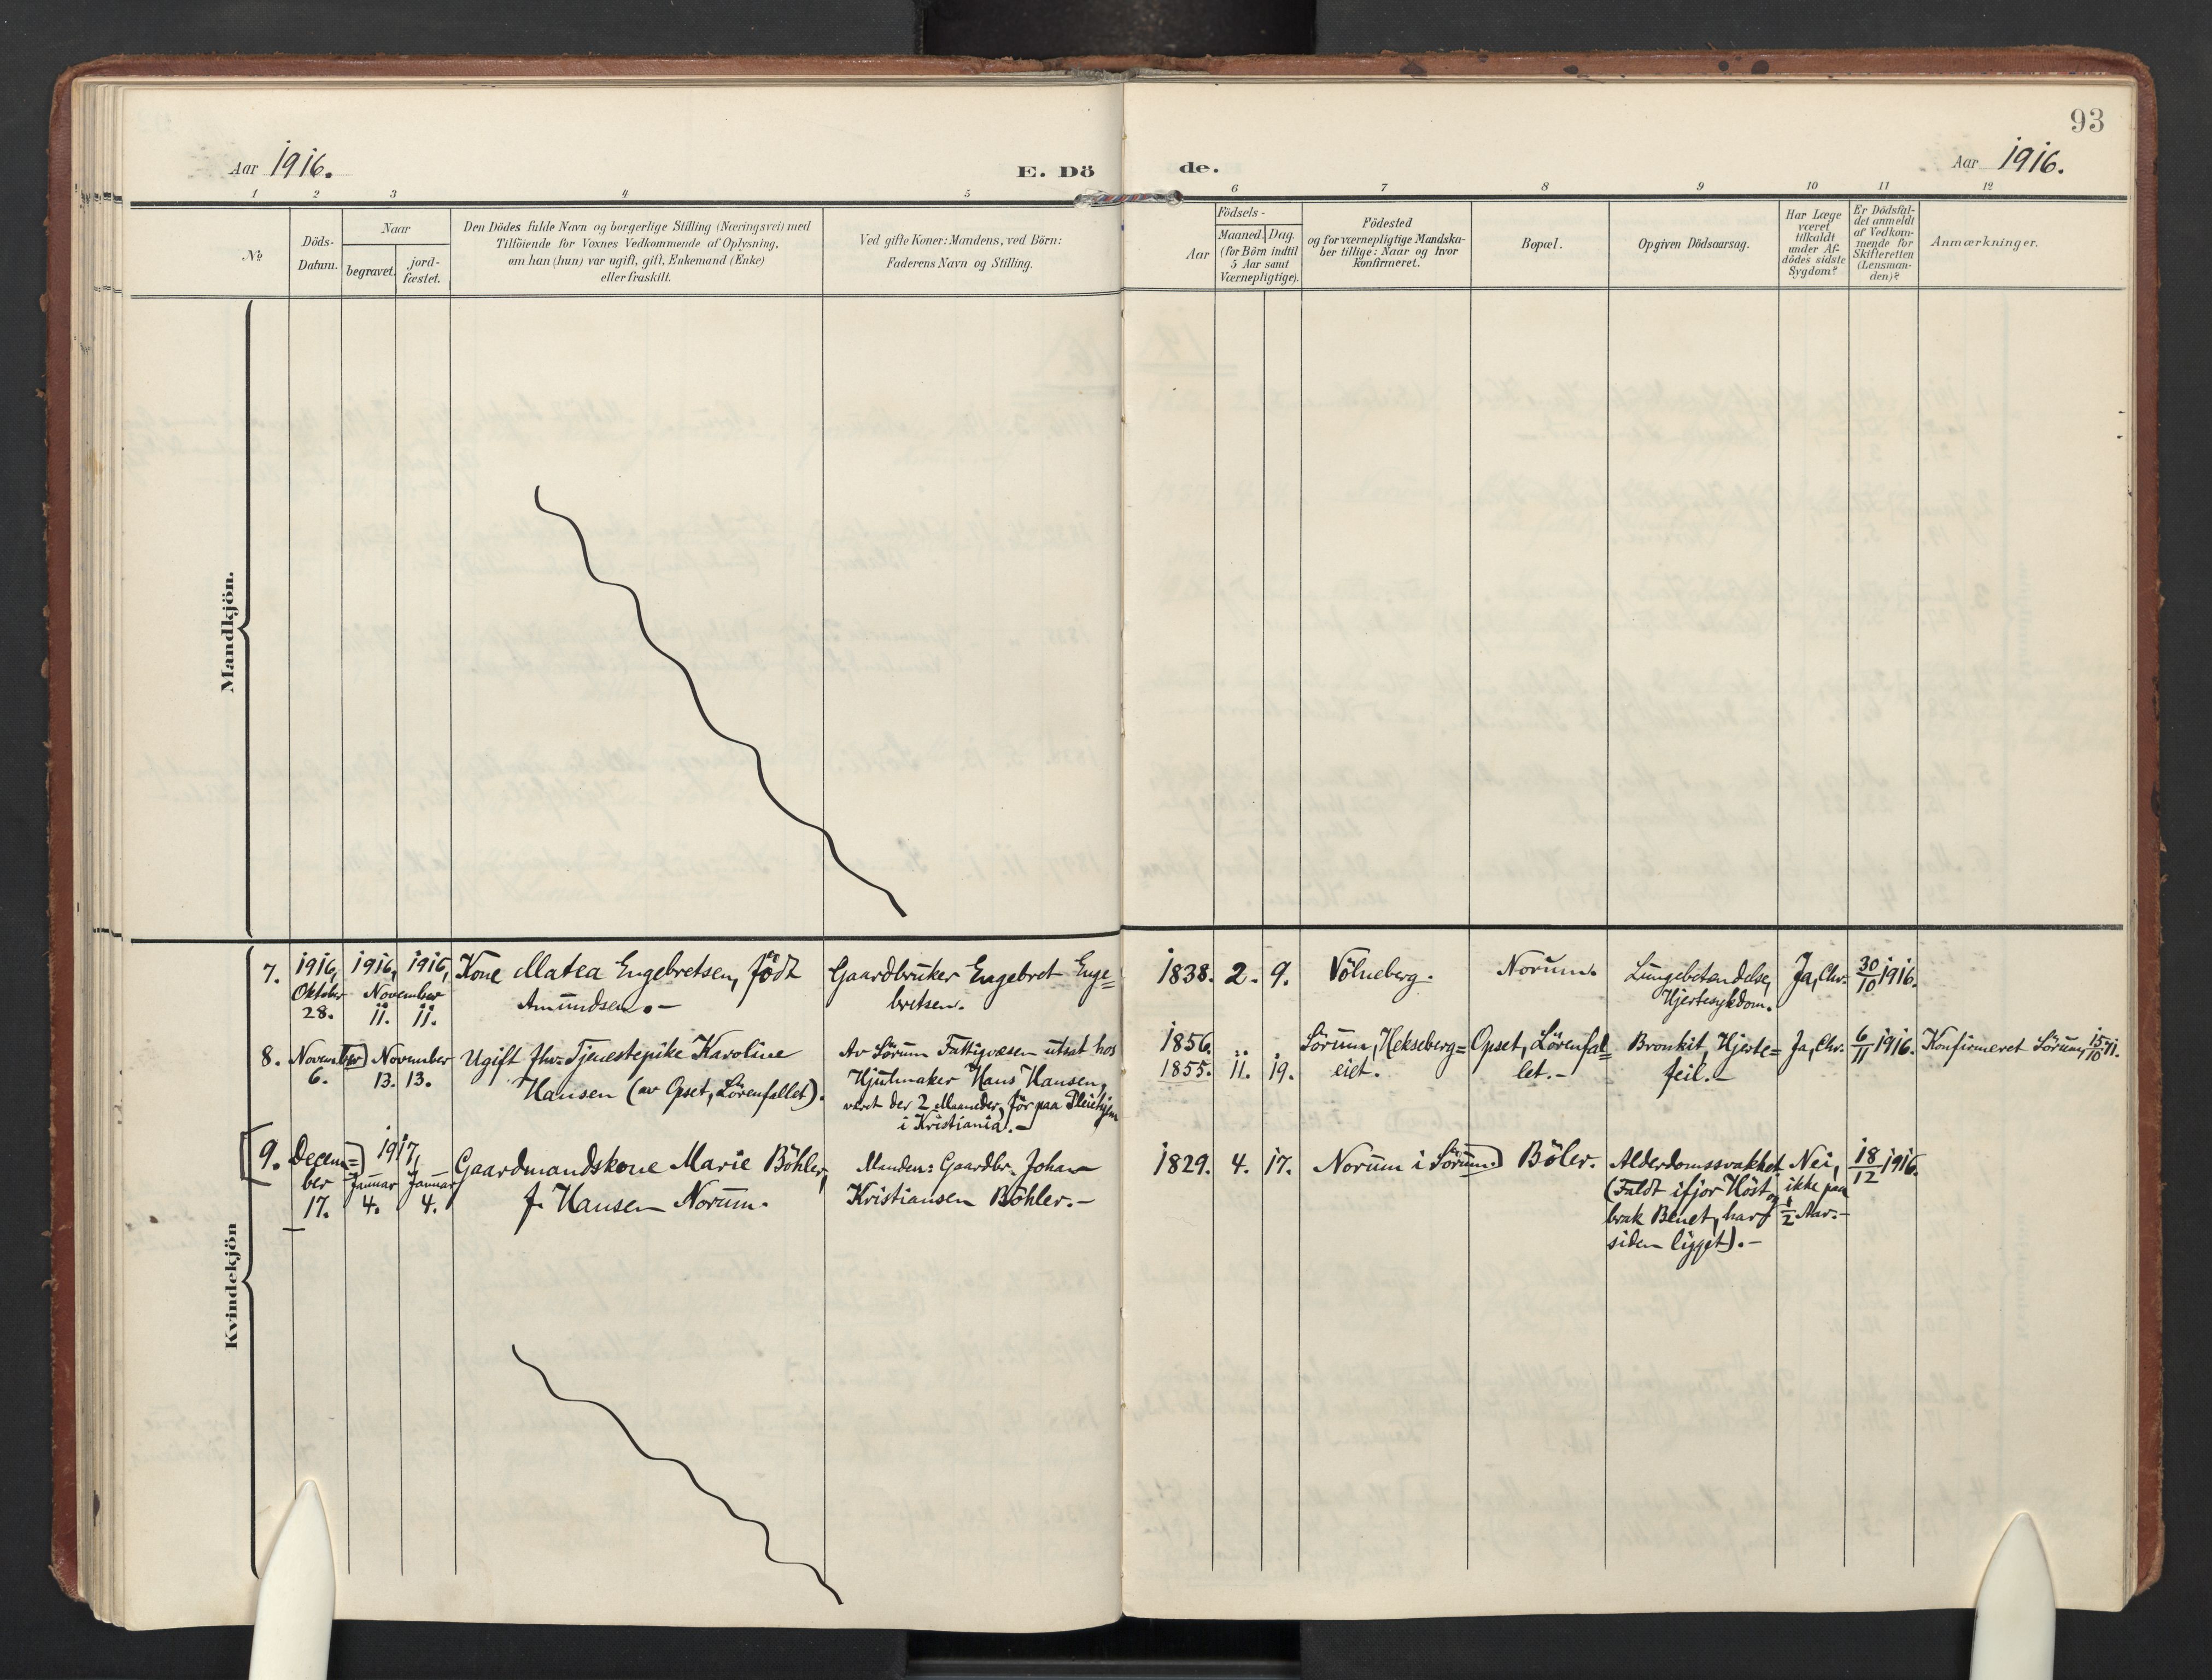 93
Aar 1916.
E. Dö
de.
Aar 1916.
1 2 3 4 5 6 7 8 9 10 11 12
No
Döds-
Datum.
Naar
begravet.
jord-
fæstet.
Den Dödes fulde Navn og borgerlige Stilling (Næringsvei) med
Tilföiende for Voxnes Vedkommende af Oplysning,
om han (hun) var ugift, gift, Enkemand (Enke)
eller fraskilt.
Ved gifte Koner: Mandens, ved Börn:
Faderens Navn og Stilling.
Aar
Födsels-
Maaned. Dag.
(for Börn indtil
5 Aar samt
Værnepligtige).
Födested
og for værnepligtige Mandska-
ber tillige: Naar og hvor
konfirmeret.
Bopæl.
Opgiven Dödsaarsag.
Har Læge
været
tilkaldt
under Af-
dödes sidste
Sygdom?
Er Dödsfal-
det anmeldt
af Vedkom-
mende for
Skifteretten
(Lensman-
den)?
Anmærkninger.
Mandkjön.
Kvindekjön
7.
1916,
Oktober
28.
1916, 1916,
November
11. 11.
Kone Matea Engebretsen, född
Amundsen.-
Gaardbruker Engebret Enge=
bretsen.
1838. 2. 9.
Völneberg.
Norum.
Lungebetændelse,
Hjertesykdom.
Ja, Chr.
30/10 1916.
8.
November
6.
November
13. 13.
Ugift fhv. Tjenestepike Karoline
Hansen (av Opset, Lörenfallet).
Av Sörum Fattigvæsen utsat hos
Hjulmaker Hans Hansen,
været der 2 Maaneder, för paa Pleiehjem
i Kristiania).-
1856.
1855. 11. 19.
Sörum, Hekseberg=
eiet.
Opset, Lörenfal=
let.-
Bronkit, Hjerte=
feil.-
Ja, Chr.
6/11 1916.
Konfirmeret Sörum, 15/10 71.
9.
Decem=
ber
17.
1917,
Januar Januar
4. 4.
Gaardmandskone Marie Böhler,
f. Hansen Norum.
Manden: Gaardbr. Johan
Kristiansen Böhler.-
1829. 4. 17.
Norum i Sörum.
Böler.
Alderdomssvakhet
(Faldt ifjor Höst og
brak Benet, har
siden ligget).-
Nei,
ikke paa
1/2 Aar.-
18/12 1916.